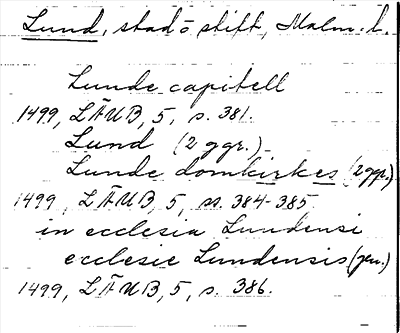 Lund, stad o stift, Malm. l.
Lunde capitell
1499, LÄUB, 5, s. 381.
Lund (2 ggr.)
Lunde domkirkes (2 ggr.)
1499, LÄUB, 5, ss. 384-385.
in ecclesia Lundensi
ecclesie Lundensis (gen.)
1499, LÄUB, 5, s. 386.